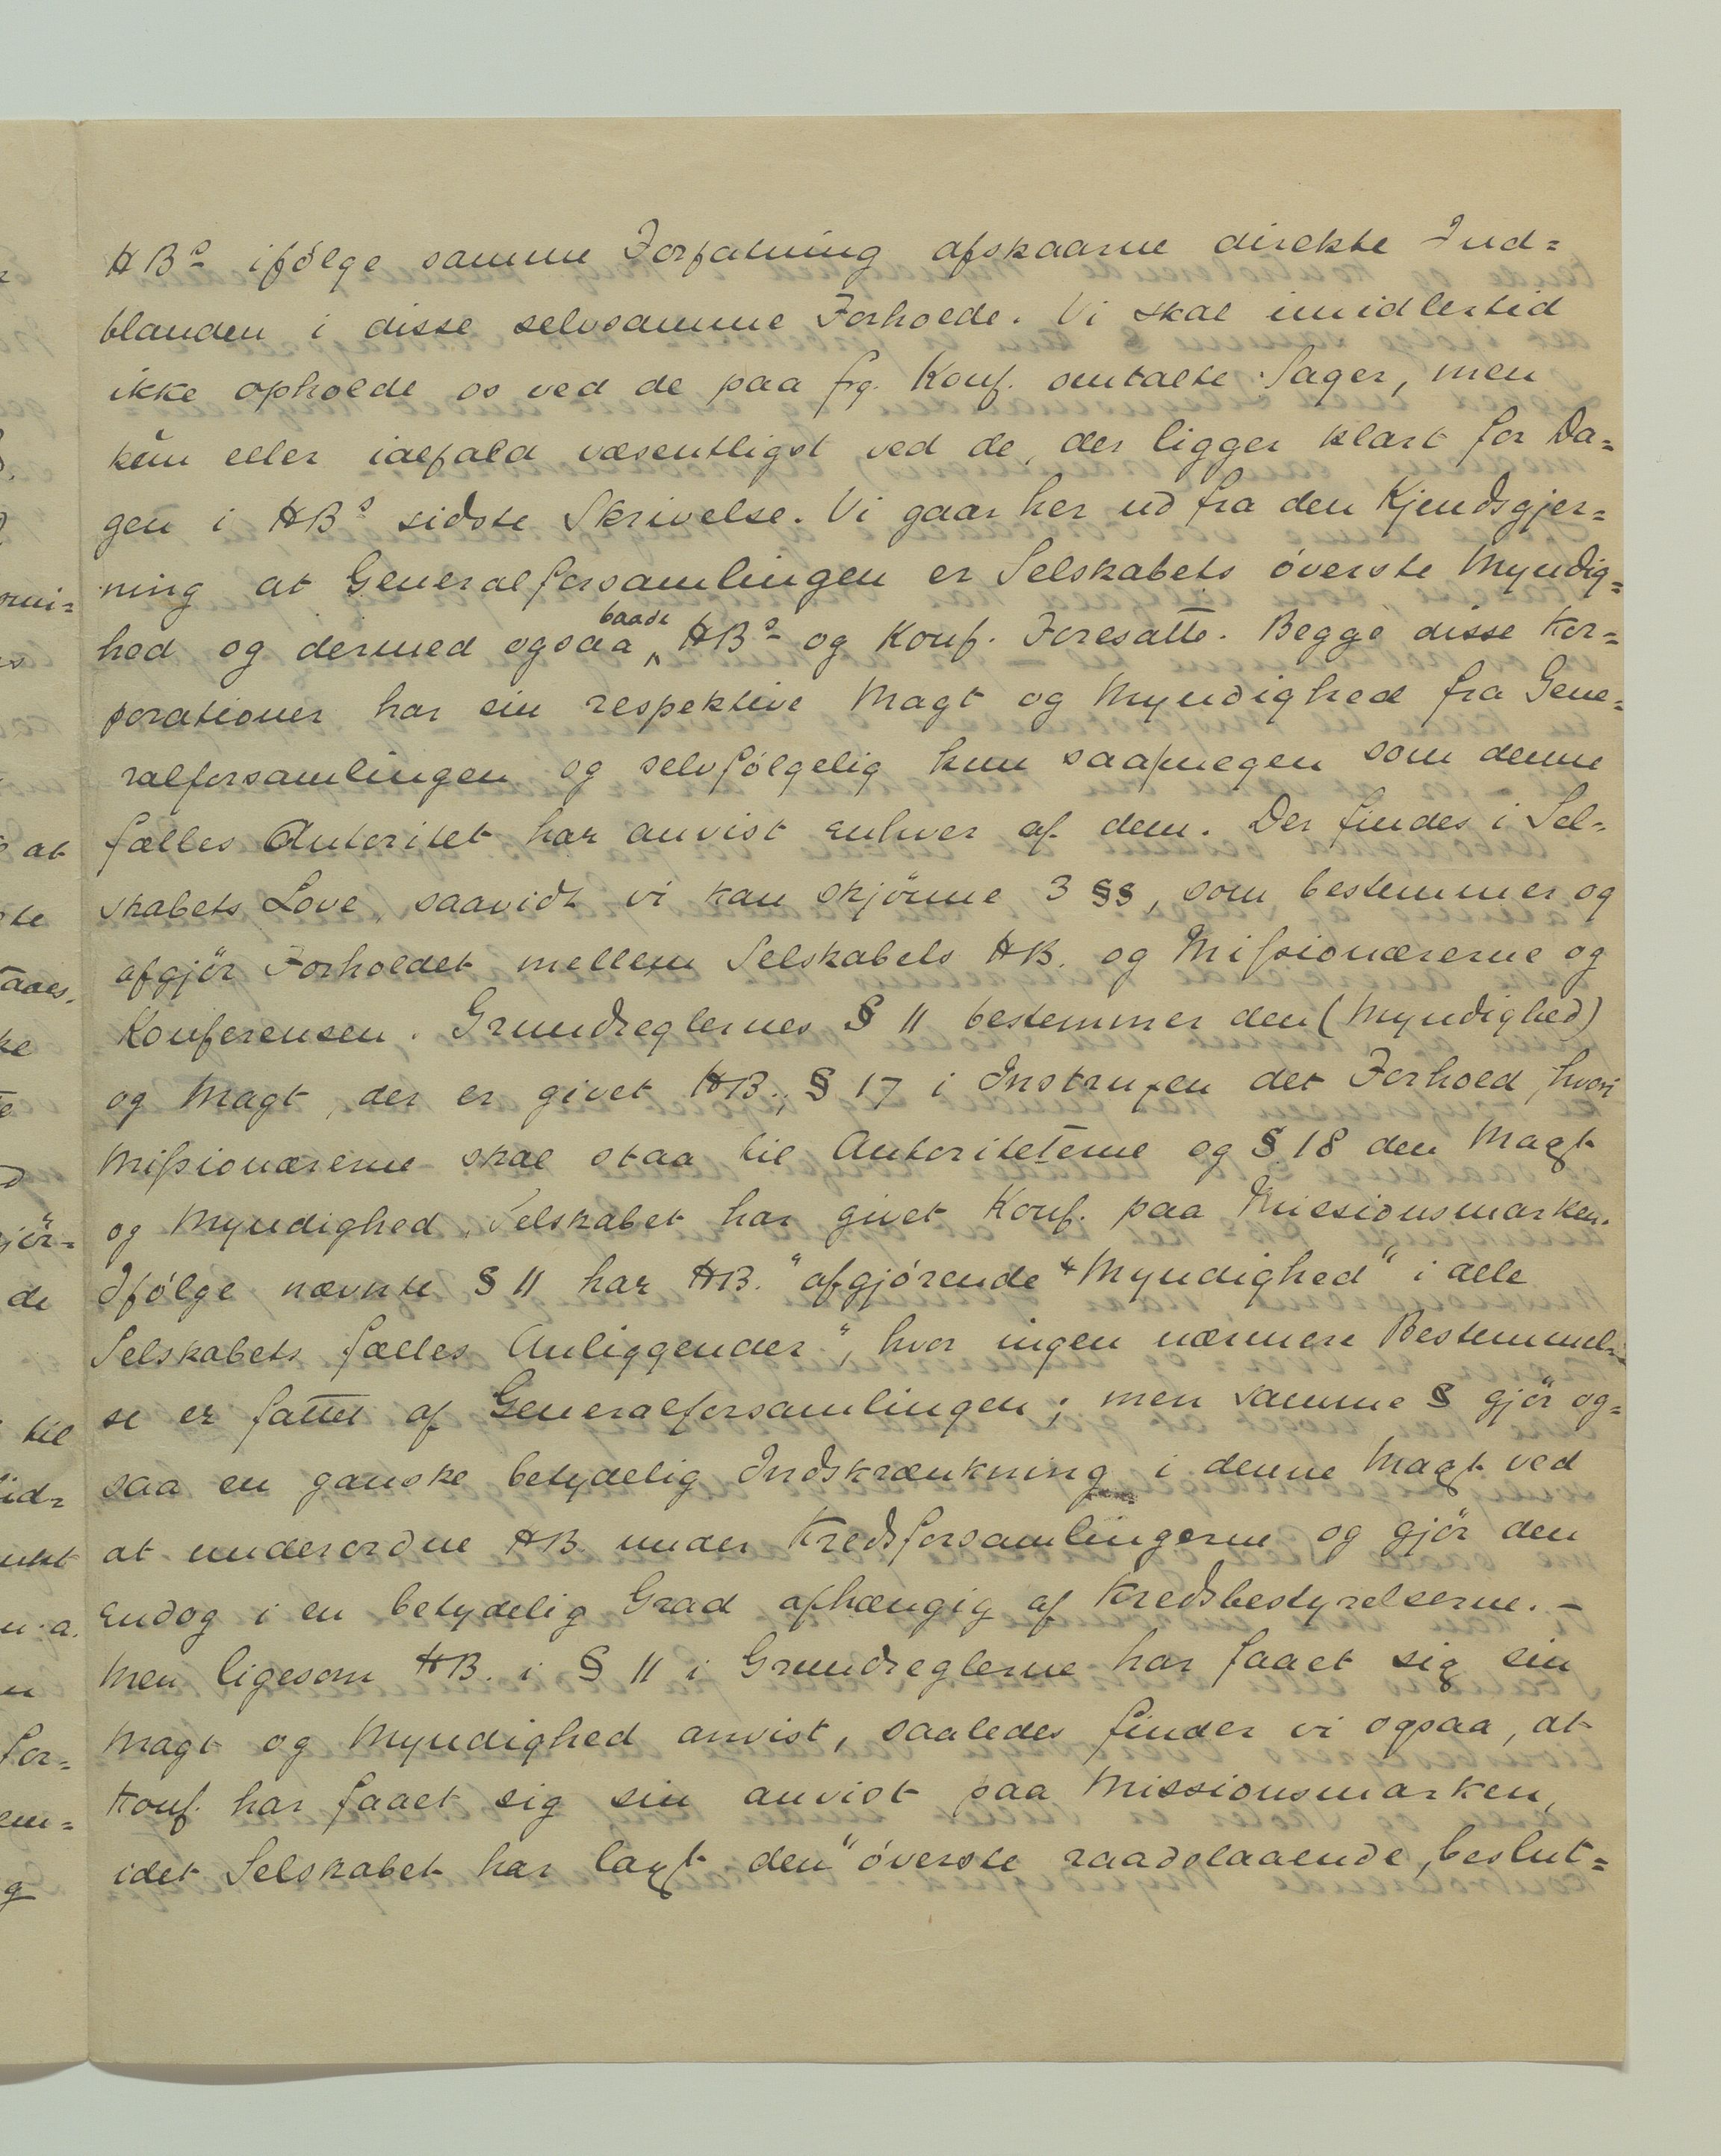 HBs ifølge samme Forfatning afskaarne direkte Ind=
blanden i disse selvsamme Forholde. Vi skal imidlertid
ikke opholde os ved de paa frg. Konf. omtalte Sager, men
kun eller ialfald væsentligst ved de, der ligger klart for Da=
gen i HBs sidste Skrivelse. Vi gaar her ud fra den Kjendsgjer=
ning at Generalforsamlingen er Selskabets överste Myndig=
hed og dermed ogsaa baade HBs og Konf. Foresatte. Begge disse Kor=
porationer har sin respektive Magt og Myndighed fra Gene=
ralforsamlingen og selvfølgelig kun saapmegen som denne
fælles Autoritet har anvist enhver af dem. Der findes i Sel=
skabets Love, saavidt vi kan skjönne 3 §§, som bestemmer og
afgjör Forholdet mellem Selskabets HB. og Missionærerne og
Konferensen. Grundreglernes § 11 bestemmer den (Myndighed)
og Magt, der er givet HB.; § 17 i Instruxen det Forhold, hvori
Missionærerne skal staa til Autoriteterne og § 18 den Magt
og Myndighed, Selskabet har givet Konf. paa Missionsmarken.
Ifølge nævnte § 11 har HB. "afgjørende Myndighed" i alle
Selskabets fælles Anliggender", hvor ingen nærmere Bestemmel=
se er fattet af Generalforsamlingen; men samme § gjör og=
saa en ganske betydelig Indskrænkning i denne Magt ved
at underordne HB. under Kredsforsamlingerne og gjör den
endog i en betydelig Grad afhængig af Kredsbestyrelserne. –
Men ligesom HB. i § 11 i Grundreglerne har faaet sig sin
Magt og Myndighed anvist, saaledes finder vi ogsaa, at
Konf. har faaet sig sin anvist paa Missionsmarken,
idet Selskabet har lagt den "överste raadslaaende, beslut=